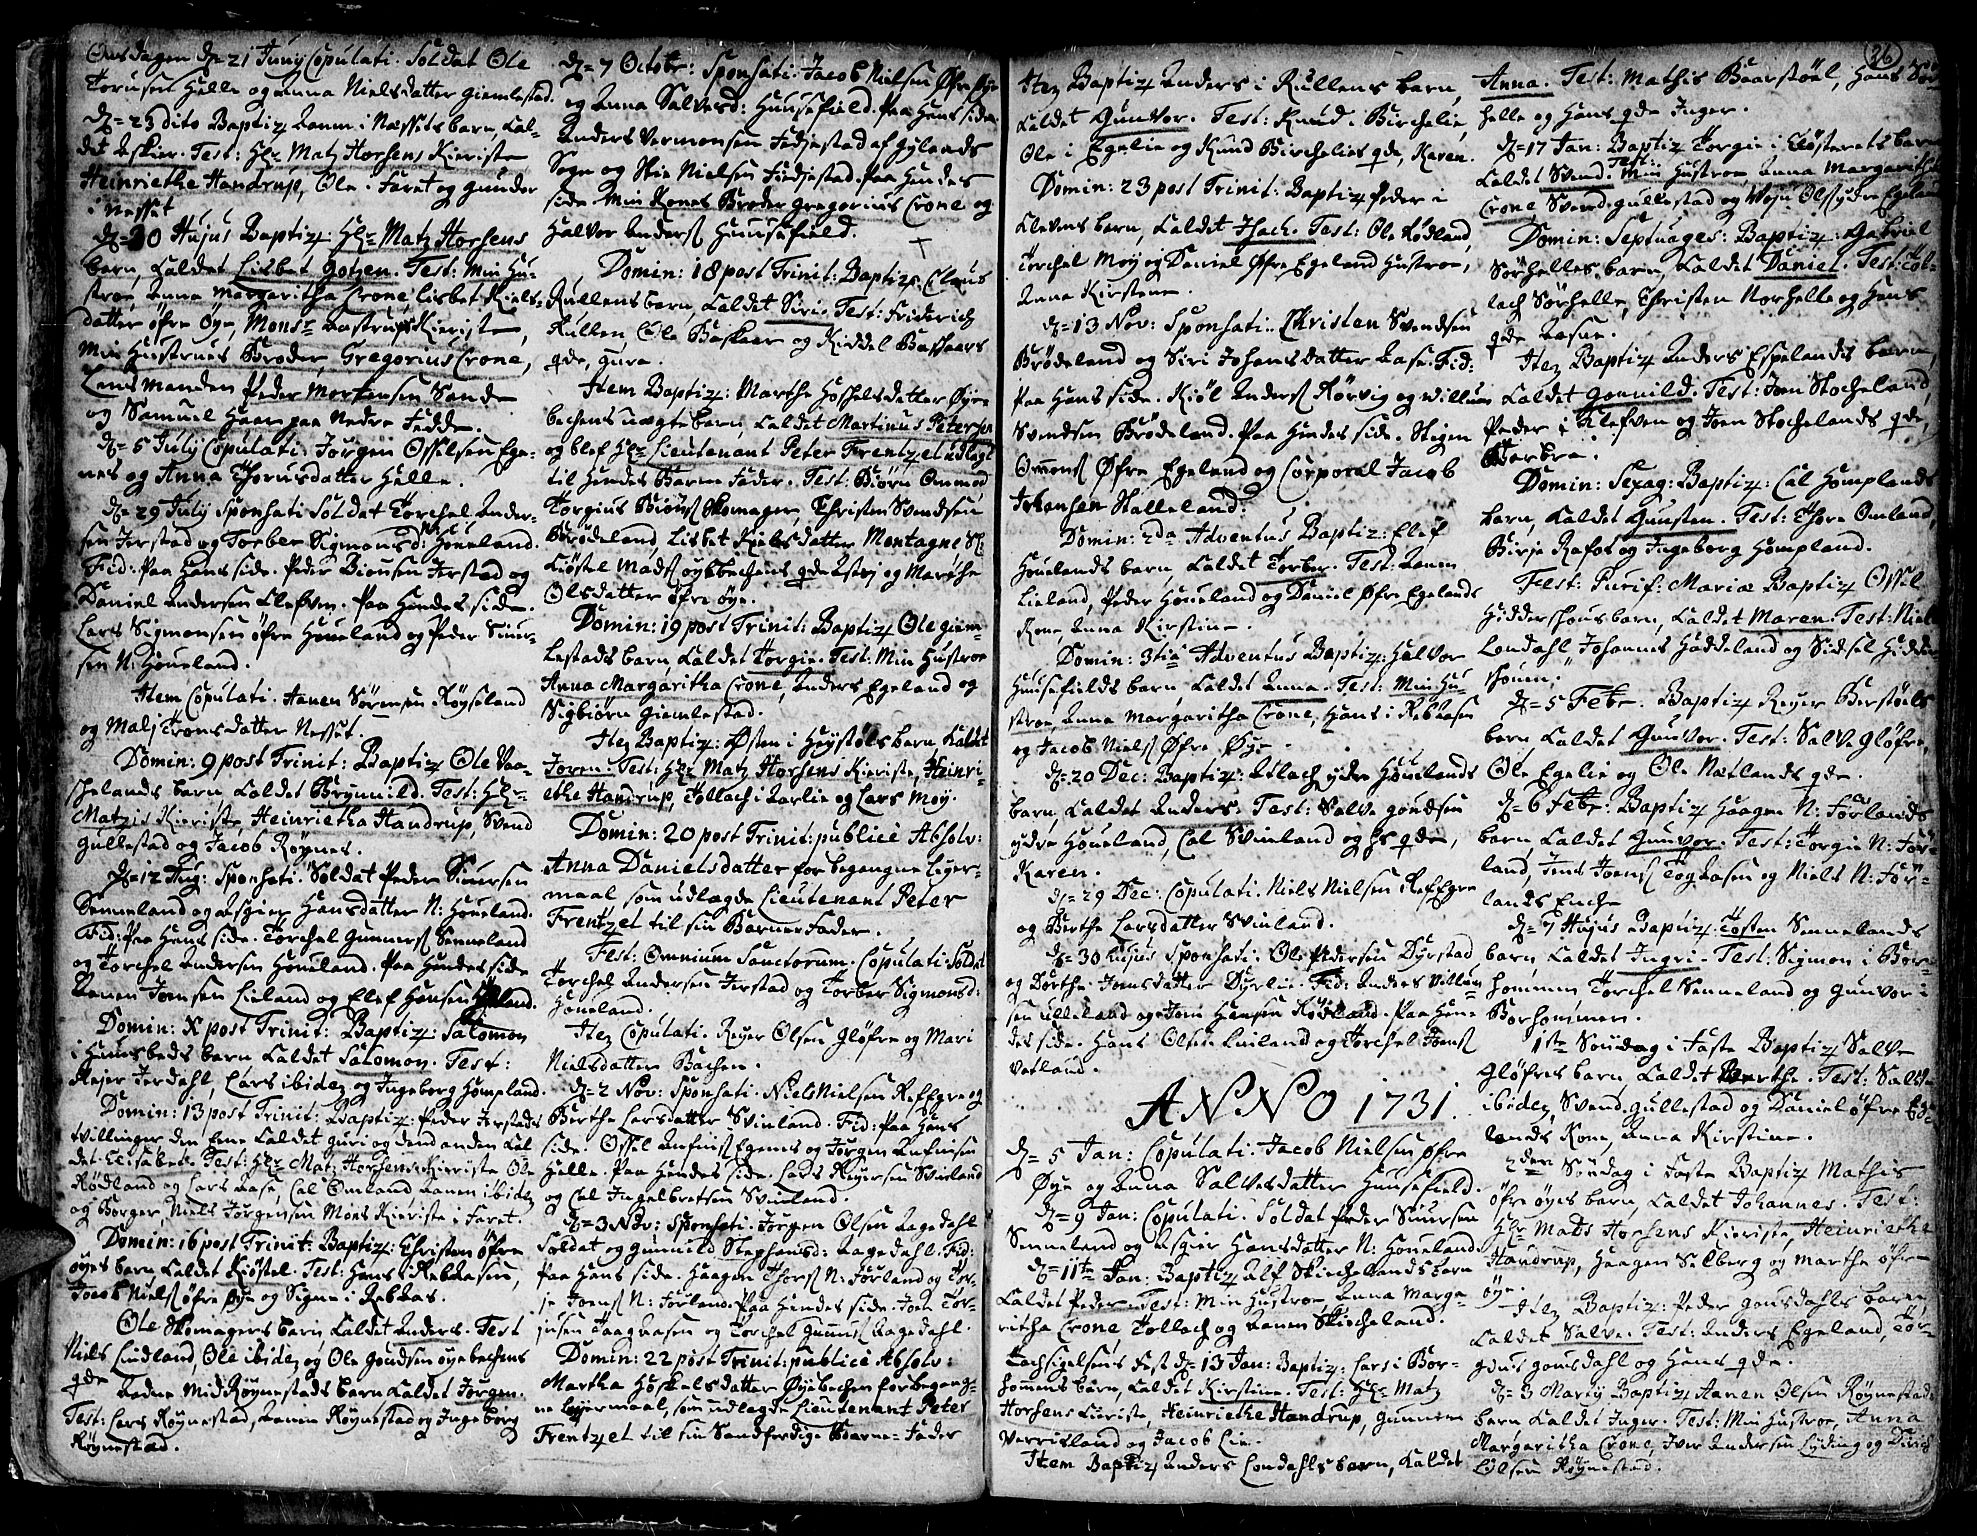 Onsdagen d= 21 Junij Copulati. Soldat Ole
Torusen Helle og Anna Nielsdatter Giemlestad.
d= 23 dito Baptiz Aanen i Næssets barn, Cal-
det Askier. Test: Hr Matz Horsens Kieriste
Heinriethe Handrup, Ole i Faret og Gunder
i Nesset
d= 30 Hujus Baptiz: Hr Matz Horsens
barn, Caldet Lisbet Gotzen. Test: Min Hu-
stroe Anna Margaritha Crone, Lisbet Niels-
datter Øfre Øye, Monsr Kieriste,
Min Hustrues Broder, Gregorius Crone,
Lensmanden Peder Mortensen Sande
og Samuel Haan paa Nedre Fedde.
d= 5 July Copulati. Jørgen Osselsen Ege-
nes og Anna Thorusdatter Helle.
d= 29 July Sponsati Soldat Torchel Ander-
sen Jerstad og Torber Sigmonsd: Houeland.
Fid: Paa Hans side. Peder Biønsen Jerstad og
Daniel Andersen Clefven. Paa Hendes side.
Lars Sigmonsen Øfre Houeland og Peder Siuer-
sen N: Houeland.
Item Copulati. Aanen Sørensen Røyseland
og Malj Tronsdatter Nesset.
Domin: 9 post Trinit: Baptiz Ole Vaa-
shelands barn Caldet Brynnild. Test: Hr
Matzis Kieriste, Heinrietha Handrup, Svend
Gullestad og Jacob Røynes.
d= 12 Aug: Sponsati. Soldat Peder Siuersen
Senneland og Asgier Hansdatter N: Houeland.
Fid: Paa Hans side. Torchel Gunners Senneland
og Torchel Andersen Houeland. Paa Hendes side
Aanen Joensen Lieland og Elef Hansen
Domin: X post Trinit: Baptiz: Salomon
i Hunsbeds barn Caldet Salomon. Test:
Rejer Jerdahl, Lars ibidem og Ingeborg Homeland
Domin: 13 post Trinit: Baptiz: Peder Jerstads
tvillinger den Eene Caldet Guri og dend anden Cal
det Elisabet. Test: Hr Matz Horsens Kieriste Ole
Rødland og Lars Aase, Cal Omland Aanen ibidem
og Borger, Niels Jørgensen Mons Kieriste i Faret.
Domin: 16 post Trinit: Baptiz: Christen Øfre
Øyes barn Caldet Kiøstel. Test: Hans i Rebaasen,
Jacob Niels Øfre Øye og Signe i Rebaas.
Ole Skomagers barn Caldet Anders. Test
Niels Lindland Ole ibidem og Ole Goudsen Øyebechens
qde Ladne Mid Røynestads barn Caldet Jørgen.
Test: Lars Røynestad, Aanen Røynestad og Ingeborg
Røynestad.
d= 7 Octobr: Sponsati. Jacob Nielsen Øfre Øye
og Anna Salvesd: Huusefield. Paa Hans side.
Anders Vermonsen Fedjestad af Gylands
Sogn og Stie Nielsen Fiedjestad. Paa Hendes
side Min Kones Broder Gregorius Crone og
Halvor Anders Huusefield.
Domin: 18 post Trinit: Baptiz Claus
Rullens barn, Caldet Siri. Test: Friderich
Rullen, Ole Baskaar og Kiddel Baskaars
qde, Gura.
Item Baptiz: Marthe Hoskelsdatter Øye
bechens uægte barn, Caldet Martinus Petersen
og blef Hr Lieutenant Peter Frentzel udlagt
til Hendes Barne Fader. Test: Biørn Ommed
Torgius Biøns Skomager, Christen Svendsen
Brødeland Lisbet Nielsdatter Montagne
Kiøstel Mads Øyebechens qde Astri og Marthe
Olsdatter Øfre Øye.
Domin: 19 post Trinit: Baptiz Ole Giem-
lestads barn Caldet Torgie. Test: Min Hustroe
Anna Margaritha Crone, Anders Egeland og
Sigbiørn Giemlestad.
Item Baptiz: Østen i Heystøls barn, Caldet
Joren. Test: Hr Matz Horsens Kieriste, Heinri-
ethe Handrup, Tollach i Aarlie og Lars Moy.
Domin: 20 post Trinit: publice Absolv:
Anna Danielsdatter for begangne Leyer-
maal som udlagde Lieutenant Peter
Frentzel til sin Barne Fader.
Fest: Omnium Sanctorum. Copulati Soldat
Torchel Andersen Jerstad og Torber Sigmonsd:
Houeland.
Item Copulati. Reyer Olsen Gløfre og Mari
Nielsdatter Bachen.
d= 2 Nov: Sponsati. Niels Nielsen Refsgre og
Berthe Larsdatter Svinland. Fid: Paa Hans
side. Ossel Anfins Egenes og Jørgen Anfinsen
Helle. Paa Hendes side. Lars Reyersen Svinland
og Cal Ingelbretsen Svinland.
d= 3 Nov: Sponsati. Jørgen Olsen Aagedahl
Soldat og Gunnild Stephensd: Aagedahl. Fid:
Paa Hans side. Haagen Thors N: Førland og Tor-
je Joens N: Førland. Paa Hendes side. Joen Tor-
jusen Haagaasen og Torchel Gunners Aagedahl.
Domin: 22 post Trinit: publice Absolv:
Martha Hoskelsdatter Øyebechen for begang-
ne Leyermaal, som udlagde Lieutenant Peter
Frentzel til sin Sandferdige Barne-Fader
26
Item Baptiz Anders i Rullens barn,
Caldet Gunvor. Test: Knud Birchelie,
Ole i Egelie og Knud Birchelies qde, Karen.
Domin: 23 post Trinit: Baptiz Peder i
Clevens barn, Caldet Isach. Test: Ole Rødland,
Torchel Moy og Daniel Øfre Egeland Hustroe,
Anna Kirstine.
d= 13 Nov: Sponsati. Christen Svendsen
Brødeland og Siri Johansdatter Aase. Fid:
Paa Hans side. Kiøl Anders Rørvig og Willum
Svendsen Brødeland. Paa Hendes side. Stigen
Omons Øfre Egeland og Corporal Jacob
Johansen Stalleland.
Domin: 2da Adventus Baptiz: Elef
Houelands barn, Caldet Torber. Test: Aanen
Lieland, Peder Houeland og Daniel Øfre Egelands
Kone Anna Kirstine.
Domin: 3tia Adventus Baptiz: Halvor
Huusefields barn Caldet Anna. Test: Min Hu-
stroe, Anna Margaritha Crone, Hans i Rebaasen
og Jacob Niels Øfre Øye.
d= 20 Dec: Baptiz: Atlach ydre Houelands
barn, Caldet Anders. Test: Salve Goudsen
ydre Houeland, Cal Svinland og Hs qde,
Karen.
d= 29 Dec: Copulati. Niels Nielsen Refsgre
og Berthe Larsdatter Svinland.
d= 30 Hujus Sponsati. Ole Pedersen Dyrstad
og Dorthe Joensdatter Dyrlie. Fid: Anders Villum
sen Ulleland og Joen Hansen Rødland. Paa Hen-
des side. Hans Olsen Linland og Torchel Joens
Vatland.
ANNO 1731.
d= 5 Jan: Copulati. Jacob Nielsen Øfre
Øye og Anna Salvesdatter Huusefield.
d= 9 Jan: Copulati. Soldat Peder Siuersen
Senneland og Asgier Hansdatter N: Houeland.
d= 11te Jan: Baptiz Alf Skiechelands barn
Caldet Peder. Test: Min Hustroe Anna Marga-
ritha Crone Tollach og Aanen Skiecheland.
Tachsigelsens Fest d= 13 Jan: Baptiz: Lars i Bor-
hommens barn, Caldet Kirstine. Test: Hr Matz
Horsens Kieriste, Heinriethe Handrup, Gunner
Verrisland og Jacob Lie.
Item Baptiz Anders Londahls barn, Caldet
Anna. Test: Mathis Baarstøel, Hans Sør-
helle og Hans qde Inger.
d= 17 Jan: Baptiz Torgie i Kløsterets barn
Caldet Svend. Test: Min Hustroe, Anna Margaritha
Crone, Svend Gullestad og Olss ydre Egeland
Domin: Septuages: Baptiz: Gabriel
Sørhelles barn, Caldet Daniel. Test: Tol-
lach Sørhelle, Christen Norhelle og Hans
qde Aasne.
Item Baptiz Anders Espelands barn,
Caldet Gonnild. Test: Joen Stocheland,
Peder i Klefven og Joen Stochelands qde,
Barbra.
Domin: Sexag: Baptiz: Cal Homplands
barn, Caldet Gunsten. Test: Thore Omland,
Birje Rafos og Ingeborg Hompland.
Fest: Purif: Mariæ Baptiz Ossel
Hidders barn, Caldet Maren. Test: Niels
Londahl Johannes Haddeland og Sidsel Hidder-

d= 5 Febr. Baptiz Reyer Berstøels
barn Caldet Gunvor. Test: Salve Gløfre,
Ole Egelie og Ole Netlands qde.
d= 6 Febr: Baptiz Haagen N: Førlands
barn, Caldet Gunvor. Test: Torgie N: Før-
land, Jens Joens og Niels N: Før-
lands Enche
d= 7 Hujus Baptiz: Tosten Sennelands
barn, Caldet Ingri. Test: Sigmon i Bor-
hommen Torchel Senneland og Gunvor i
Borhommen.
1ste Søndag i Faste Baptiz Salve
Gløfres barn, Caldet Berthe. Test: Salve
ibidem, Svend Gullestad og Daniel Øfre Ege-
lands Kone, Anna Kirstine.
2den Søndag i Faste Baptiz Mathis
Øfre Øyes barn, Caldet Johannes. Test:
Hr Mads Horsens Kieriste, Heinriethe
Handrup, Haagen Salberg og Marthe Øfre
Øye.
Item Baptiz: Peder Gousdahls barn,
Caldet Salve. Test: Anders Egeland, Tor-
gius Gousdahl og Hans qde.
d= 3 Martij Baptiz Aanen Olsen Røynestads
barn Caldet Inger. Test: Min Hustroe, Anna
Margaritha Crone, Iver Andersen Lyding og Dirich
Olsen Røynestad.